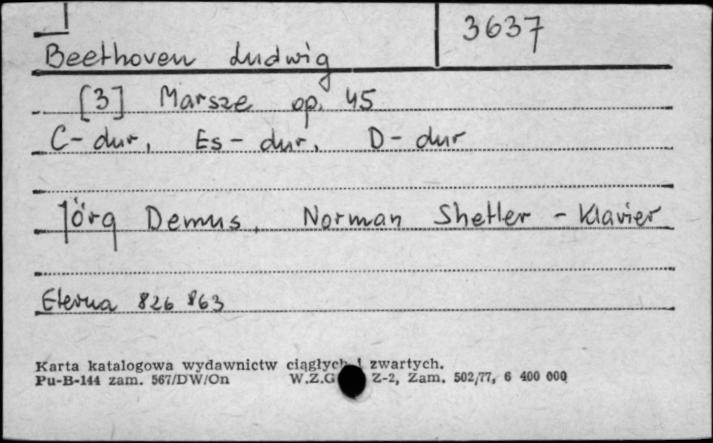 3637
Beethoven Ludwig
[3] Marsze op. 45
C-dur, Es-dur, D-dur
Jörg Demus, Norman Shetler - Klavier
Eterna 826 863
Karta katalogowa wydawnictw ciągłych i zwartych.
Pu-B-144 zam. 567/DW/On W.Z.G Z-2, Zam. 502/77, 6 400 000